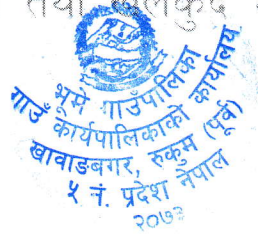 तथा खेलकुद
भूमे गाउँपालिका
गाउँ कार्यपालिकाको कार्यालय
खावाङबगर, रुकुम (पूर्व)
५ नं. प्रदेश नेपाल
२०७३